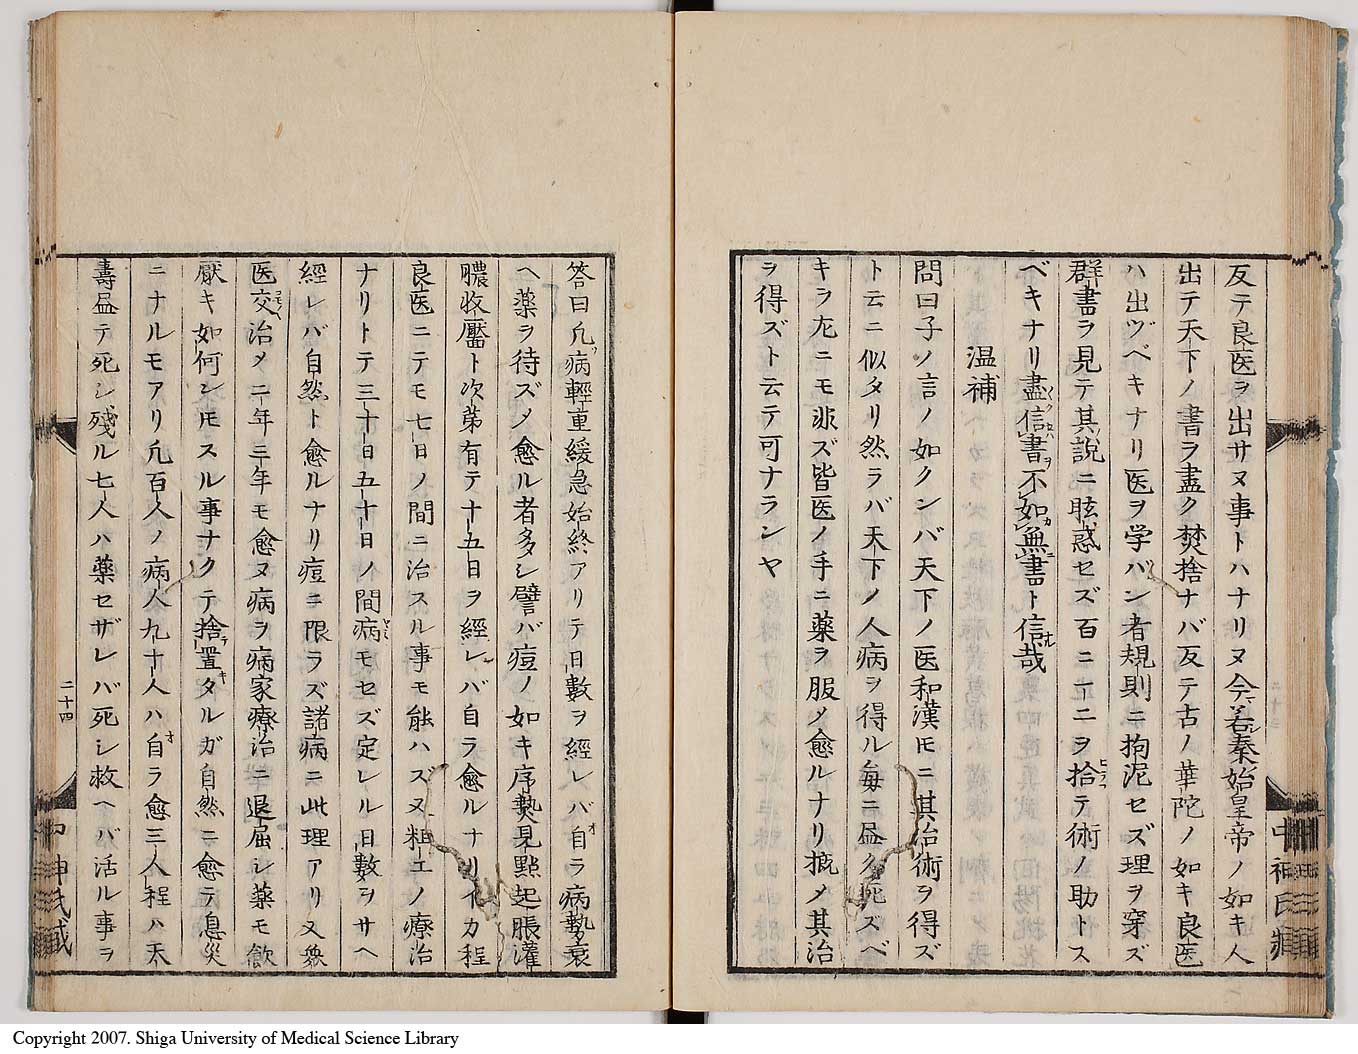 反テ良医ヲ出サヌ事トハナリヌ今若秦始皇帝ノ如キ人
出テ天下ノ書ヲ盡ク焚捨ナバ反テ古ノ華陀ノ如キ良医
ハ出ヅベキナリ医ヲ学バン者規則ニ拘泥セズ理ヲ穿ズ
群書ヲ見テ其説ニ眩惑セズ百ニ一ニヲ拾テ術ノ助トス
ベキナリ盡信書不如無書ト信哉
温補
問曰子ノ言ノ如クンバ天下ノ医和漢モニ其治術ヲ得ズ
ト云ニ似タリ然ラバ天下ノ人病ヲ得ル毎ニ尽ク死ズベ
キヲ左ニモ非ズ皆医ノ手ニ薬ヲ服メ愈ルナリ摠メ其治
ヲ得ズト云テ可ナランヤ
答曰凡病輕重緩急始終アリテ日數ヲ經レバ自ラ病勢衰
ヘ薬ヲ待ズメ愈ル者多シ譬バ痘ノ如キ序熱見點起脹灌
膿收靨ト次第有テ十五日ヲ經レバ自ラ愈ルナリイカ程
良医ニテモ七日ノ間ニ治スル事モ能ハズ又粗工ノ療治
ナリトテ三十日五十日ノ間病モセズ定レル日數ヲサヘ
經レバ自然ト愈ルナリ痘ニ限ラズ諸病ニ此理アリ又衆
医交治メ二年三年モ愈ヌ病ヲ病家療治ニ退屈シ薬モ飲
厭キ如何シモスル事ナクテ捨置タルガ自然ニ愈テ息災
ニナルモアリ凡百人ノ病人九十人ハ自ラ愈三人程ハ天
壽盡テ死シ残ル七人ハ薬セザレバ死シ救ヘバ活ル事ヲ
二十四
中神氏藏
Copyright 2007. Shiga University of Medical Science Library